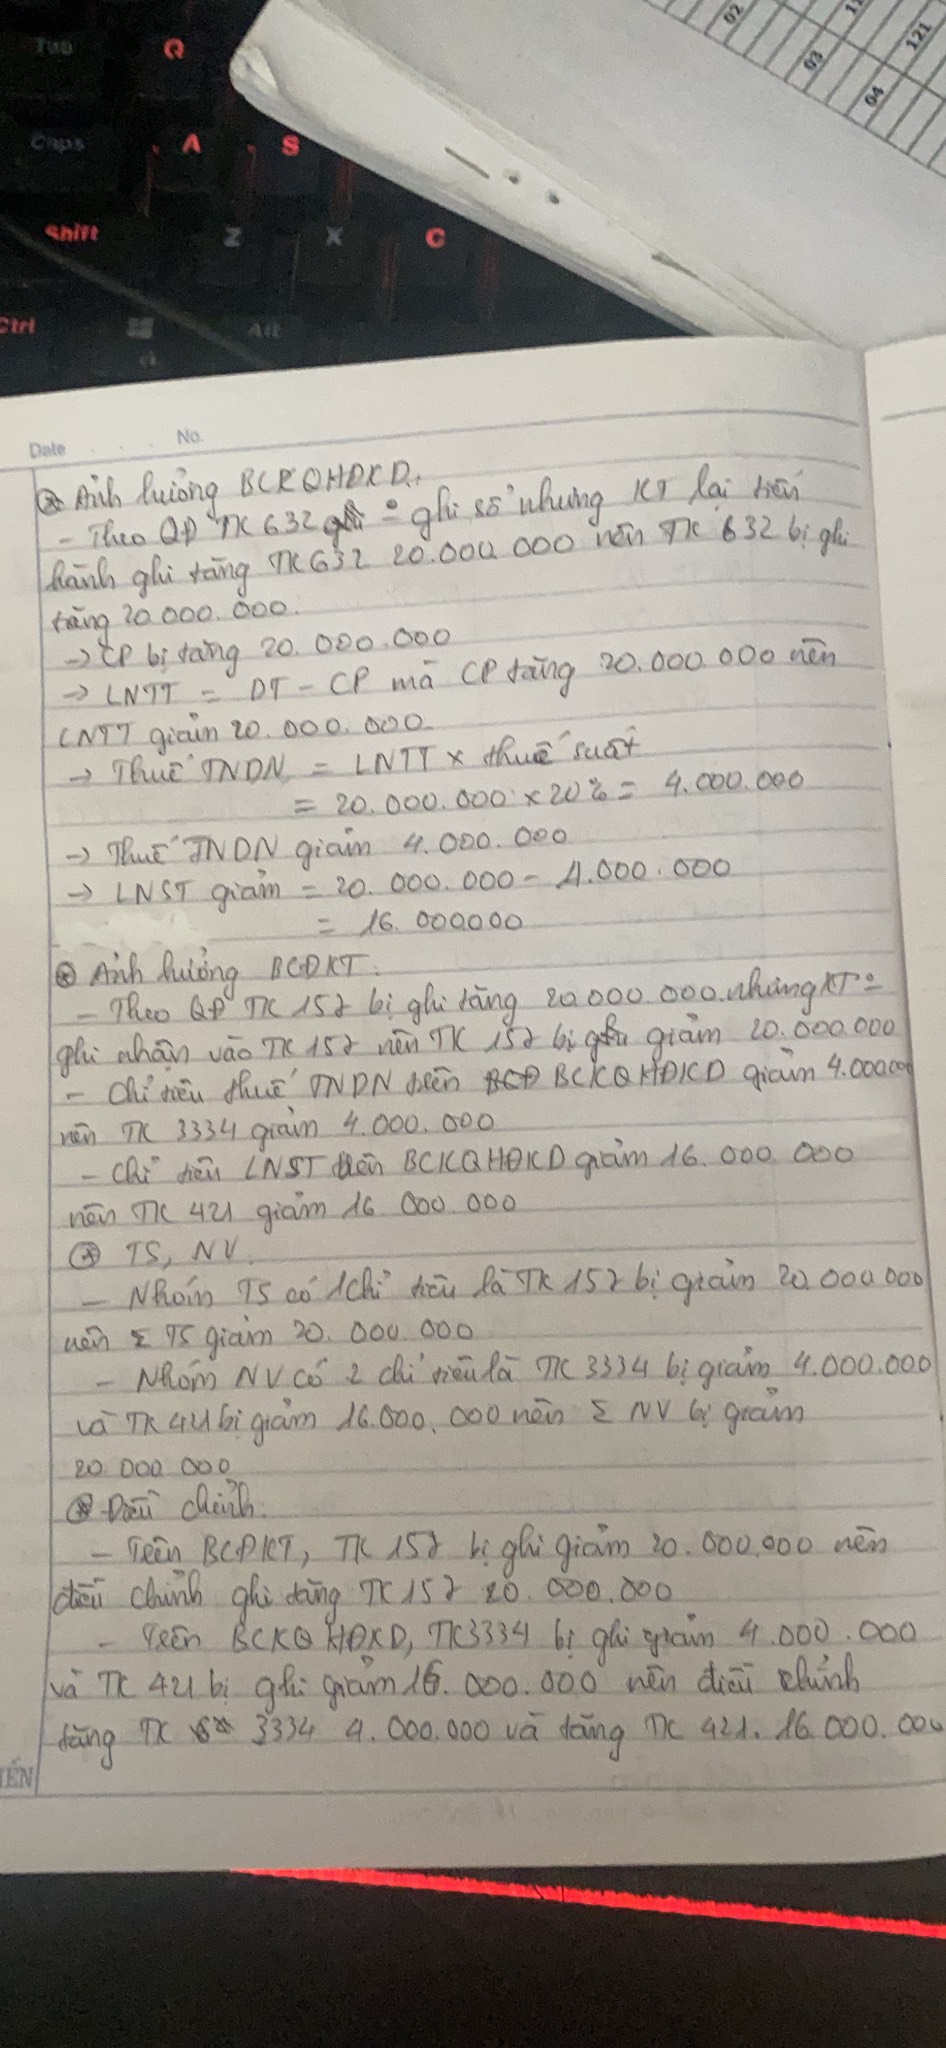 02
03
04
11
121
Tab
Q
Caps
A
S
Shift
Z
X
C
Ctrl
Alt
Date
No.
Ảnh hưởng BCKQHĐKD.
- Theo QĐ TK 632 ghi sổ nhưng KT lại tiến
hành ghi tăng TK 632 20.000.000 nên TK 632 bị ghi
tăng 20.000.000.
→ CP bị tăng 20.000.000
→ LNTT = DT - CP mà CP tăng 20.000.000 nên
LNTT giảm 20.000.000
→ Thuế TNDN = LNTT x thuế suất
= 20.000.000 x 20% = 4.000.000
→ Thuế TNDN giảm 4.000.000
→ LNST giảm = 20.000.000 - 4.000.000
= 16.000000
Ảnh hưởng BCĐKT.
- Theo QĐ TK 152 bị ghi tăng 20.000.000 nhưng KT
ghi nhận vào TK 152 nên TK 152 bị giảm 20.000.000
- Chỉ tiêu thuế TNDN trên BCKQHĐKD giảm 4.000000
nên TK 3334 giảm 4.000.000
- Chỉ tiêu LNST trên BCKQHĐKD giảm 16.000.000
nên TK 421 giảm 16 000.000
TS, NV.
- Nhóm TS có 1 chỉ tiêu là TK 152 bị giảm 20.000.000
nên Σ TS giảm 20.000.000
- Nhóm NV có 2 chỉ tiêu là TK 3334 bị giảm 4.000.000
và TK 421 bị giảm 16.000.000 nên Σ NV bị giảm
20 000 000
Điều chỉnh.
- Trên BCĐKT, TK 152 bị ghi giảm 20.000.000 nên
điều chỉnh ghi tăng TK 152 20.000.000
- Trên BCKQHĐKD, TK3334 bị ghi giảm 4.000.000
và TK 421 bị ghi giảm 16.000.000 nên điều chỉnh
tăng TK 3334 4.000.000 và tăng TK 421. 16.000.000
IẾN